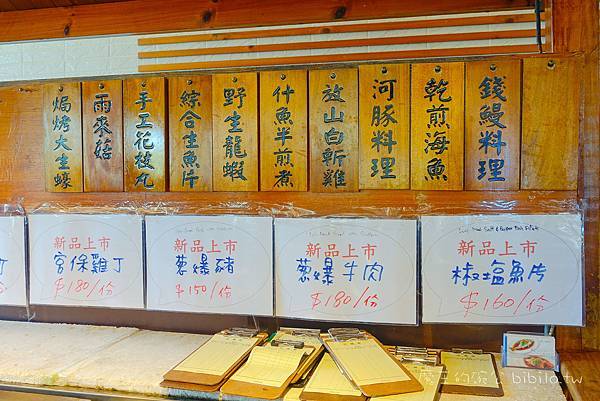 錢鰻料理
乾煎海魚
河豚料理
放山白斬雞
什魚半煎煮
野生龍蝦
綜合生魚片
手工花枝丸
雨來菇
焗烤大生蠔
丁
份
新品上市
宮保雞丁
$180/份
新品上市
蔥爆豬
$150/份
新品上市
蔥爆牛肉
$180/份
新品上市
椒塩魚片
$160/份
魔王的碗 x bibila.tw